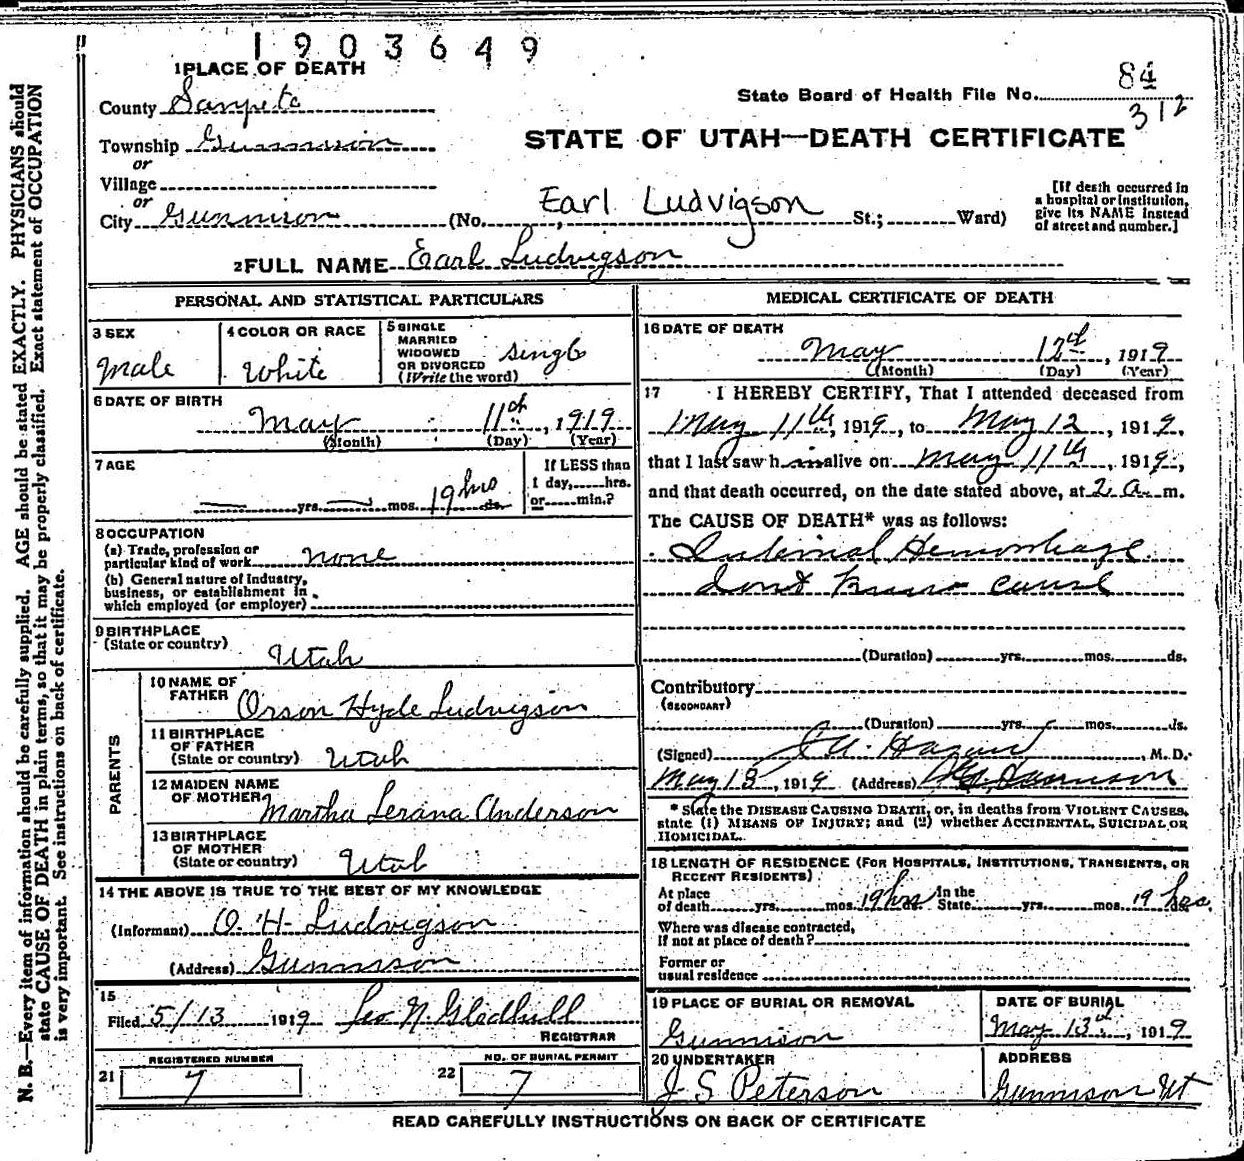 1903649
1 PLACE OF DEATH
84
County Sanpete
State Board of Health File No.
312
Township Gunnison
STATE OF UTAH—DEATH CERTIFICATE
or
Village
or
City Gunnison (No. Earl Ludvigson St.; Ward)
[If death occurred in
a hospital or institution,
give its NAME instead
of street and number.]
2 FULL NAME Earl Ludvigson
PERSONAL AND STATISTICAL PARTICULARS
3 SEX
Male
4 COLOR OR RACE
White
5 SINGLE
MARRIED
WIDOWED
OR DIVORCED
(Write the word)
single
6 DATE OF BIRTH
May 11th, 1919
(Month) (Day) (Year)
7 AGE
yrs. mos. 19 hrs ds.
If LESS than
1 day, hrs.
or min.?
8 OCCUPATION
(a) Trade, profession or
particular kind of work none
(b) General nature of Industry,
business, or establishment in
which employed (or employer)
9 BIRTHPLACE
(State or country)
Utah
PARENTS
10 NAME OF
FATHER Orson Hyde Ludvigson
11 BIRTHPLACE
OF FATHER
(State or country) Utah
12 MAIDEN NAME
OF MOTHER Martha Lerana Anderson
13 BIRTHPLACE
OF MOTHER
(State or country) Utah
14 THE ABOVE IS TRUE TO THE BEST OF MY KNOWLEDGE
(Informant) O. H. Ludvigson
(Address) Gunnison
15
Filed 5/13 1919 Leo N. Gledhill
REGISTRAR
REGISTERED NUMBER
21 7
NO. OF BURIAL PERMIT
22 7
MEDICAL CERTIFICATE OF DEATH
16 DATE OF DEATH
May 12th, 1919
(Month) (Day) (Year)
17 I HEREBY CERTIFY, That I attended deceased from
May 11th, 1919, to May 12, 1919,
that I last saw h im alive on May 11th, 1919,
and that death occurred, on the date stated above, at 2 a. m.
The CAUSE OF DEATH* was as follows:
Internal Hemorrhage
dont know cause
(Duration) yrs. mos. ds.
Contributory
(SECONDARY)
(Duration) yrs. mos. ds.
(Signed) Hagan, M. D.
May 13, 1919 (Address) Gunnison
* State the DISEASE CAUSING DEATH, or, in deaths from VIOLENT CAUSES,
state (1) MEANS OF INJURY; and (2) whether ACCIDENTAL, SUICIDAL OR
HOMICIDAL.
18 LENGTH OF RESIDENCE (FOR HOSPITALS, INSTITUTIONS, TRANSIENTS, OR
RECENT RESIDENTS)
At place In the
of death yrs. mos. 19 hrs ds. State yrs. mos. 19 hrs.
Where was disease contracted,
If not at place of death?
Former or
usual residence
19 PLACE OF BURIAL OR REMOVAL
Gunnison
DATE OF BURIAL
May 13th, 1919
20 UNDERTAKER
J S Peterson
ADDRESS
Gunnison Ut
READ CAREFULLY INSTRUCTIONS ON BACK OF CERTIFICATE
N. B.—Every item of information should be carefully supplied. AGE should be stated EXACTLY. PHYSICIANS should
state CAUSE OF DEATH in plain terms, so that it may be properly classified. Exact statement of OCCUPATION
is very important. See instructions on back of certificate.